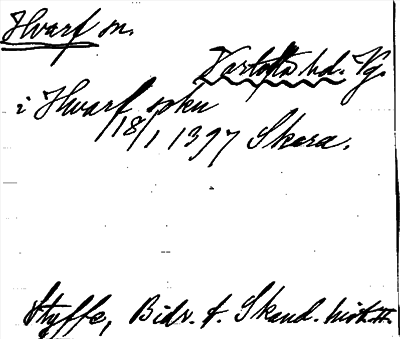 Hwarf sn.
Vartofta hd. Vg.
i Hwarf sokn
18/1 1397 Skara.
Styffe, Bidr. t. Skand. hist. II.